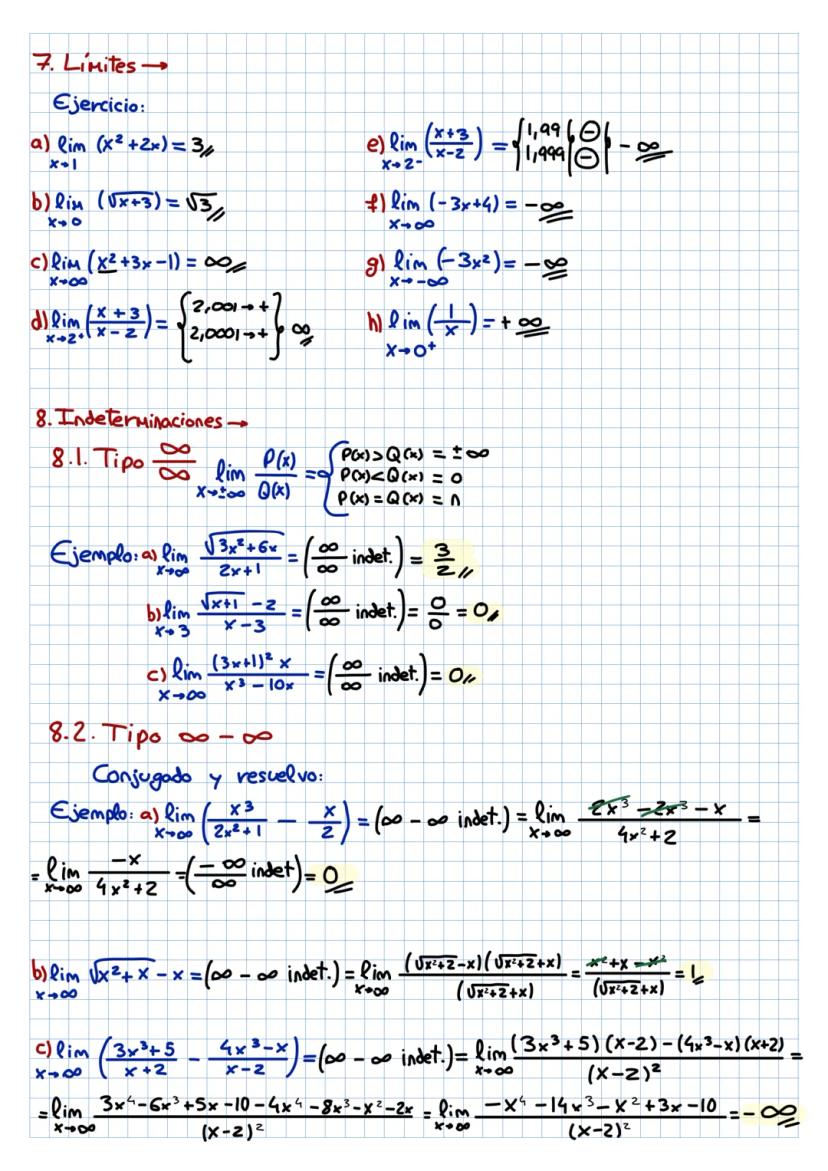 7. Límites →
Ejercicio:
a) lim x→1 (x² + 2x) = 3
b) lim x→0 (√x+3) = √3
c) lim x→∞ (x² + 3x - 1) = ∞
d) lim x→2⁺ (x + 3 / x - 2) = { 2,001 → + 2,0001 → + } ∞
e) lim x→2⁻ (x+3 / x-2) = { 1,99 ( ⊖ 1,999 ( ⊖ } - ∞
f) lim x→∞ (-3x+4) = -∞
g) lim x→-∞ (-3x²) = -∞
h) lim x→0⁺ (1 / x) = + ∞
8. Indeterminaciones →
8.1. Tipo ∞/∞ lim x→±∞ P(x) / Q(x) = { P(x) > Q(x) = ±∞
P(x) < Q(x) = 0
P(x) = Q(x) = n
Ejemplo: a) lim x→∞ √3x²+6x / 2x+1 = (∞/∞ indet.) = 3/2
b) lim x→3 √x+1 - 2 / x-3 = (∞/∞ indet.) = 0/0 = 0
c) lim x→∞ (3x+1)² x / x³ - 10x = (∞/∞ indet.) = 0
8.2. Tipo ∞ - ∞
Conjugado y resuelvo:
Ejemplo: a) lim x→∞ (x³ / 2x²+1 - x / 2) = (∞ - ∞ indet.) = lim x→∞ 2x³ - 2x³ - x / 4x²+2 =
= lim x→∞ -x / 4x²+2 = (-∞/∞ indet) = 0
b) lim x→∞ √x²+x - x = (∞ - ∞ indet.) = lim x→∞ (√x²+2 - x)(√x²+2 + x) / (√x²+2 + x) = x² + x - x² / (√x²+2 + x) = 1
c) lim x→∞ (3x³+5 / x+2 - 4x³-x / x-2) = (∞ - ∞ indet.) = lim x→∞ (3x³+5)(x-2) - (4x³-x)(x+2) / (x-2)² =
= lim x→∞ 3x⁴ - 6x³ + 5x - 10 - 4x⁴ - 8x³ - x² - 2x / (x-2)² = lim x→∞ -x⁴ - 14x³ - x² + 3x - 10 / (x-2)² = -∞